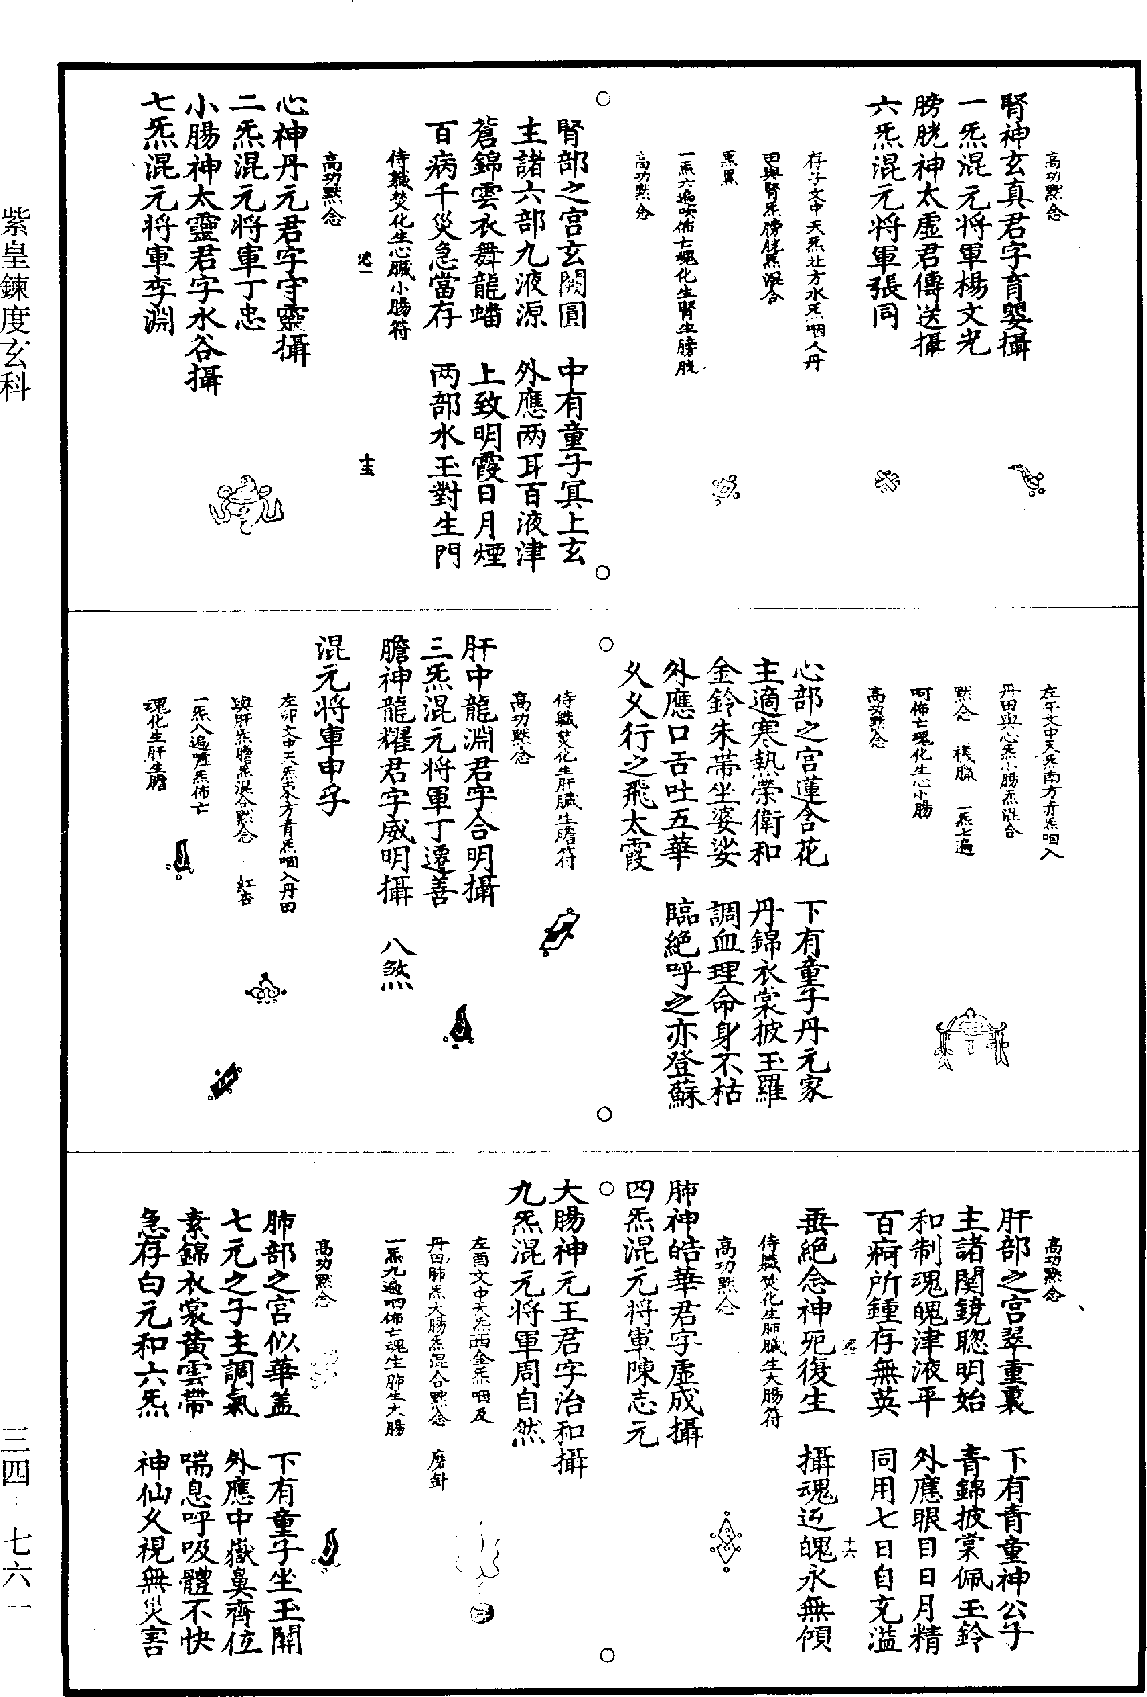 紫皇鍊度玄科
三四·七六一
高功黙念
腎神玄真君字育嬰攝
一炁混元将軍楊文光
膀胱神太虚君傳送攝
六炁混元将軍張同
存子文中天炁北方水炁咽入丹
田與腎炁膀胱炁混合
一炁六遍吹佈亡魂化生腎生膀胱
高功黙念
腎部之宫玄闕圓 中有童子冥上玄
主諸六部九液源 外應两耳百液津
蒼錦雲衣舞龍蟠 上致明霞日月煙
百病千災急當存 两部水玉對生門
侍職焚化生心臟小腸符
高功黙念
心神丹元君字守靈攝
二炁混元将軍丁忠
小腸神太靈君字水谷攝
七炁混元将軍李淵
左午文中天炁南方丹炁咽入
丹田與心炁小腸炁混合
黙念 一炁七遍
呵佈亡魂化生心小腸
高功黙念
心部之宫蓮含花 下有童子丹元家
主適寒熱榮衛和 丹錦衣裳披玉羅
金鈴朱帶坐婆娑 調血理命身不枯
外應口舌吐五華 臨絕呼之亦登蘇
乆乆行之飛太霞
侍職焚化生肝臟生膽符
高功黙念
肝中龍淵君字合明攝
三炁混元将軍丁遷善
膽神龍耀君字威明攝 八煞
混元将軍申孚
左卯文中天炁東方青炁咽入丹田
與肝炁膽炁混合黙念 紅杏
一炁八遍噓炁佈亡
魂化生肝生膽
高功黙念
肝部之宫翠重裏 下有青童神公子
主諸関鏡聦明始 青錦披裳佩玉鈴
和制魂魄津液平 外應眼目日月精
百痾所鍾存無英 同用七日自充溢
垂絕念神死復生 攝魂还魄永無傾
十六
侍職焚化生肺臟生大腸符
高功黙念
肺神皓華君字虚成攝
四炁混元将軍陳志元
大腸神元王君字治和攝
九炁混元将軍周自然
左酉文中天炁西金炁咽及
丹田肺炁大腸炁混合黙念 磨針
一炁九遍呬佈亡魂生肺生大腸
高功黙念
肺部之宫似華盖 下有童子坐玉闕
七元之子主調氣 外應中嶽鼻齊位
素錦衣裳黄雲帶 喘息呼吸體不快
急存白元和六炁 神仙乆視無災害